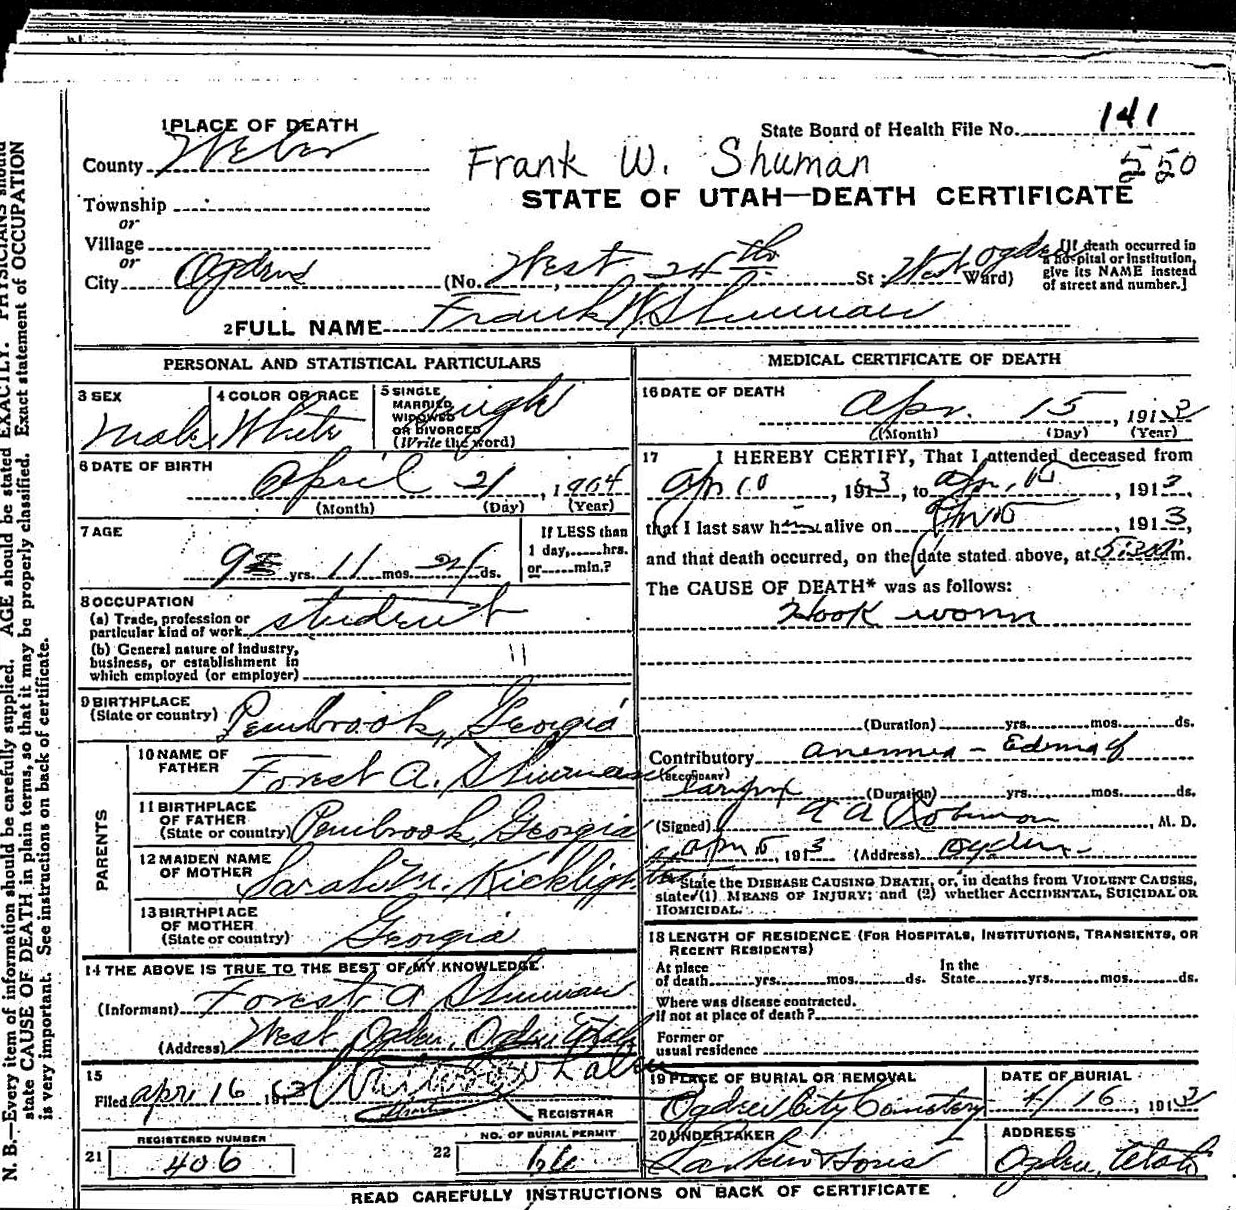 1 PLACE OF DEATH
State Board of Health File No. 141
County Weber
Frank W. Shuman
550
STATE OF UTAH—DEATH CERTIFICATE
Township
or
Village
or
City Ogden (No. West 24th St West Ogden Ward)
[If death occurred in
a hospital or institution,
give its NAME instead
of street and number.]
2 FULL NAME Frank W. Shuman
PERSONAL AND STATISTICAL PARTICULARS
3 SEX
Male
4 COLOR OR RACE
White
5 SINGLE
MARRIED
WIDOWED
OR DIVORCED
(Write the word)
Single
6 DATE OF BIRTH
April 21, 1904
(Month) (Day) (Year)
7 AGE
If LESS than
1 day, hrs.
or min.?
yrs. 11 mos. ds.
8 OCCUPATION
(a) Trade, profession or
particular kind of work student
(b) General nature of industry,
business, or establishment in
which employed (or employer) "
9 BIRTHPLACE
(State or country) Pembrook, Georgia
PARENTS
10 NAME OF
FATHER Forest A. Shuman
11 BIRTHPLACE
OF FATHER
(State or country) Pembrook, Georgia
12 MAIDEN NAME
OF MOTHER Sarah M. Kicklighter
13 BIRTHPLACE
OF MOTHER
(State or country) Georgia
14 THE ABOVE IS TRUE TO THE BEST OF MY KNOWLEDGE
(Informant) Forest A Shuman
(Address) West Ogden, Ogden Utah
15
Filed apr. 16 1913
REGISTRAR
REGISTERED NUMBER
21 406
NO. OF BURIAL PERMIT
22 66
MEDICAL CERTIFICATE OF DEATH
16 DATE OF DEATH
Apr. 15, 1913
(Month) (Day) (Year)
17 I HEREBY CERTIFY, That I attended deceased from
Apr 10, 1913, to Apr. 15, 1913,
that I last saw him alive on Apr 15, 1913,
and that death occurred, on the date stated above, at m.
The CAUSE OF DEATH* was as follows:
Hook worm
(Duration) yrs. mos. ds.
Contributory anemia - Edema of
(SECONDARY)
larynx (Duration) yrs. mos. ds.
(Signed) Robinson, M. D.
Apr 15, 1913 (Address) Ogden
*State the DISEASE CAUSING DEATH, or, in deaths from VIOLENT CAUSES,
state (1) MEANS OF INJURY; and (2) whether ACCIDENTAL, SUICIDAL OR
HOMICIDAL.
18 LENGTH OF RESIDENCE (FOR HOSPITALS, INSTITUTIONS, TRANSIENTS, OR
RECENT RESIDENTS)
At place
of death yrs. mos. ds.
In the
State yrs. mos. ds.
Where was disease contracted.
If not at place of death?
Former or
usual residence
19 PLACE OF BURIAL OR REMOVAL
Ogden City Cemetery
DATE OF BURIAL
4/16, 1913
20 UNDERTAKER
Larkin & Sons
ADDRESS
Ogden, Utah
READ CAREFULLY INSTRUCTIONS ON BACK OF CERTIFICATE
N. B.—Every item of information should be carefully supplied. AGE should be stated EXACTLY. PHYSICIANS should
state CAUSE OF DEATH in plain terms, so that it may be properly classified. Exact statement of OCCUPATION
is very important. See instructions on back of certificate.